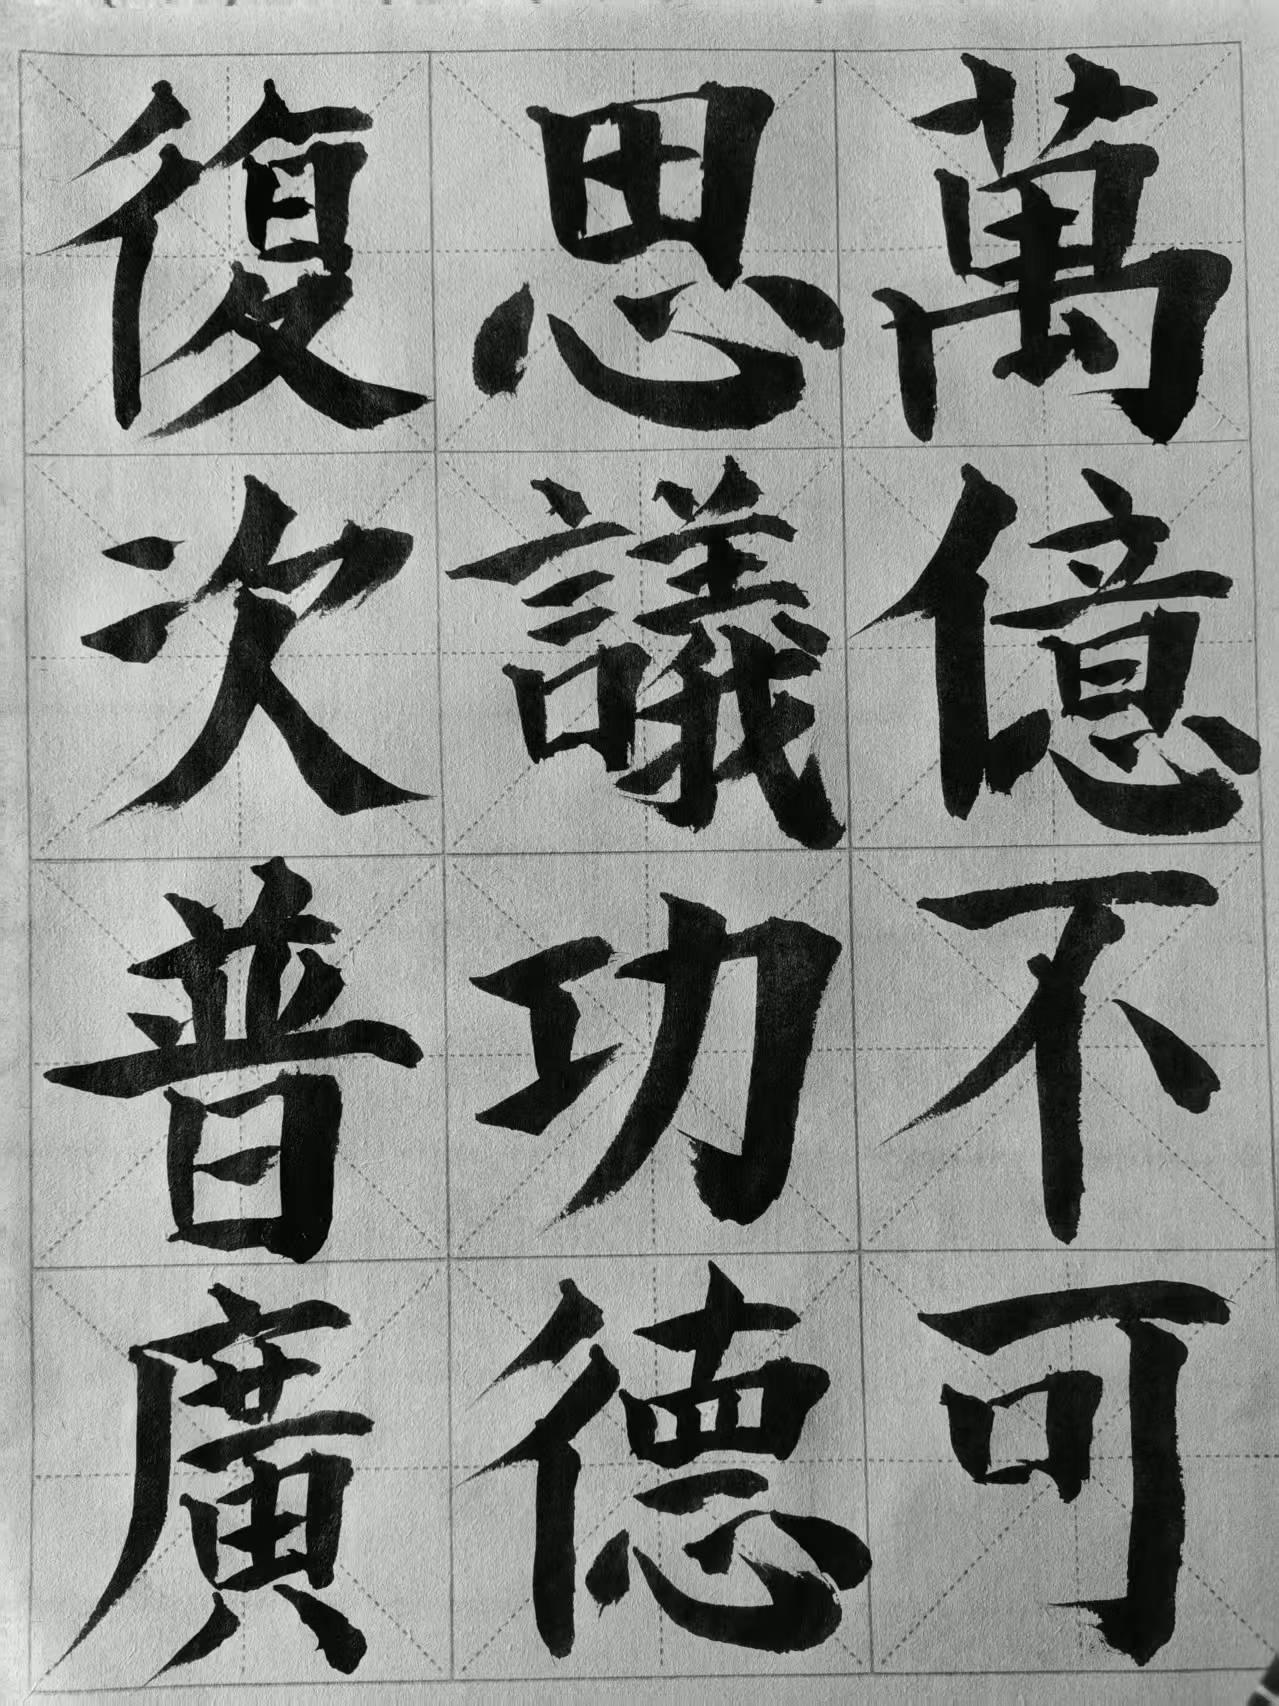 萬億不可
思議功德
復次普廣